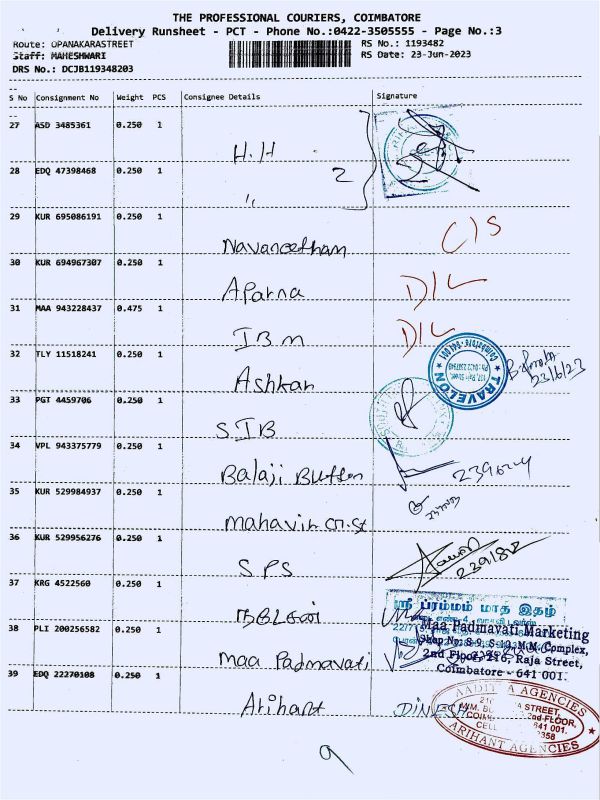 THE PROFESSIONAL COURIERS, COIMBATORE
Delivery Runsheet - PCT - Phone No.:0422-3505555 - Page No.:3
Route: OPANAKARASTREET
RS No.: 1193482
Staff: MAHESHWARI
RS Date: 23-Jun-2023
DRS No.: DCJB119348203
S No Consignment No Weight PCS Consignee Details Signature
27 ASD 3485361 0.250 1
H.H 2
28 EDQ 47398468 0.250 1
"
29 KUR 695086191 0.250 1
Navaneetham C/S
30 KUR 694967307 0.250 1
Aparna D/L
31 MAA 943228437 0.475 1
IBM D/L
32 TLY 11518241 0.250 1
Ashkar
TRAVELON
Coimbatore - 641 001
23/6/23
33 PGT 4459706 0.250 1
SIB
34 VPL 943375779 0.250 1
Balaji Button
35 KUR 529984937 0.250 1
36 KUR 529956276 0.250 1
SPS
37 KRG 4522560 0.250 1
ஸ்ரீ ப்ரம்மம் மாத இதழ்
38 PLI 200256582 0.250 1
Maa Padmavati
Maa Padmavati Marketing
Shop No: S-9, S-10, M.M. Complex,
2nd Floor, 216, Raja Street,
Coimbatore - 641 001.
39 EDQ 22270108 0.250 1
Arihant DINESH
AADITYA AGENCIES
STREET,
2nd FLOOR,
641 001.
ARIHANT AGENCIES
9